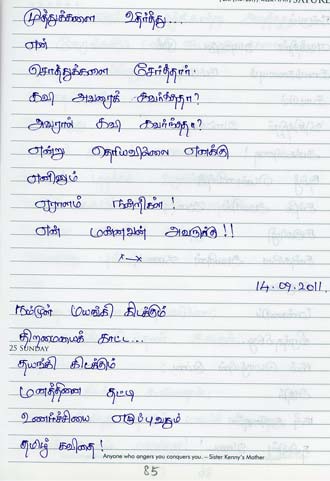 முத்துக்களை உதிர்த்து...
என்
சொத்துக்களை சேர்த்தார்.
கவி அவரைக் கவர்ந்ததா?
அவரால் கவி கவர்ந்ததா?
என்று தெரியவில்லை எனக்கு
எனினும்
ஏராளம் நன்றிகள்!
என் மன்னவன் அவருக்கு!!
14.09.2011.
நம்முள் மயங்கி கிடக்கும்
திறமையைக் காட்ட...
25 SUNDAY
தயங்கி கிடக்கும்
மனத்தினை தட்டி
உணர்ச்சியை எழுப்புவதும்
தமிழ் கவிதை!
Anyone who angers you conquers you. – Sister Kenny's Mother
85